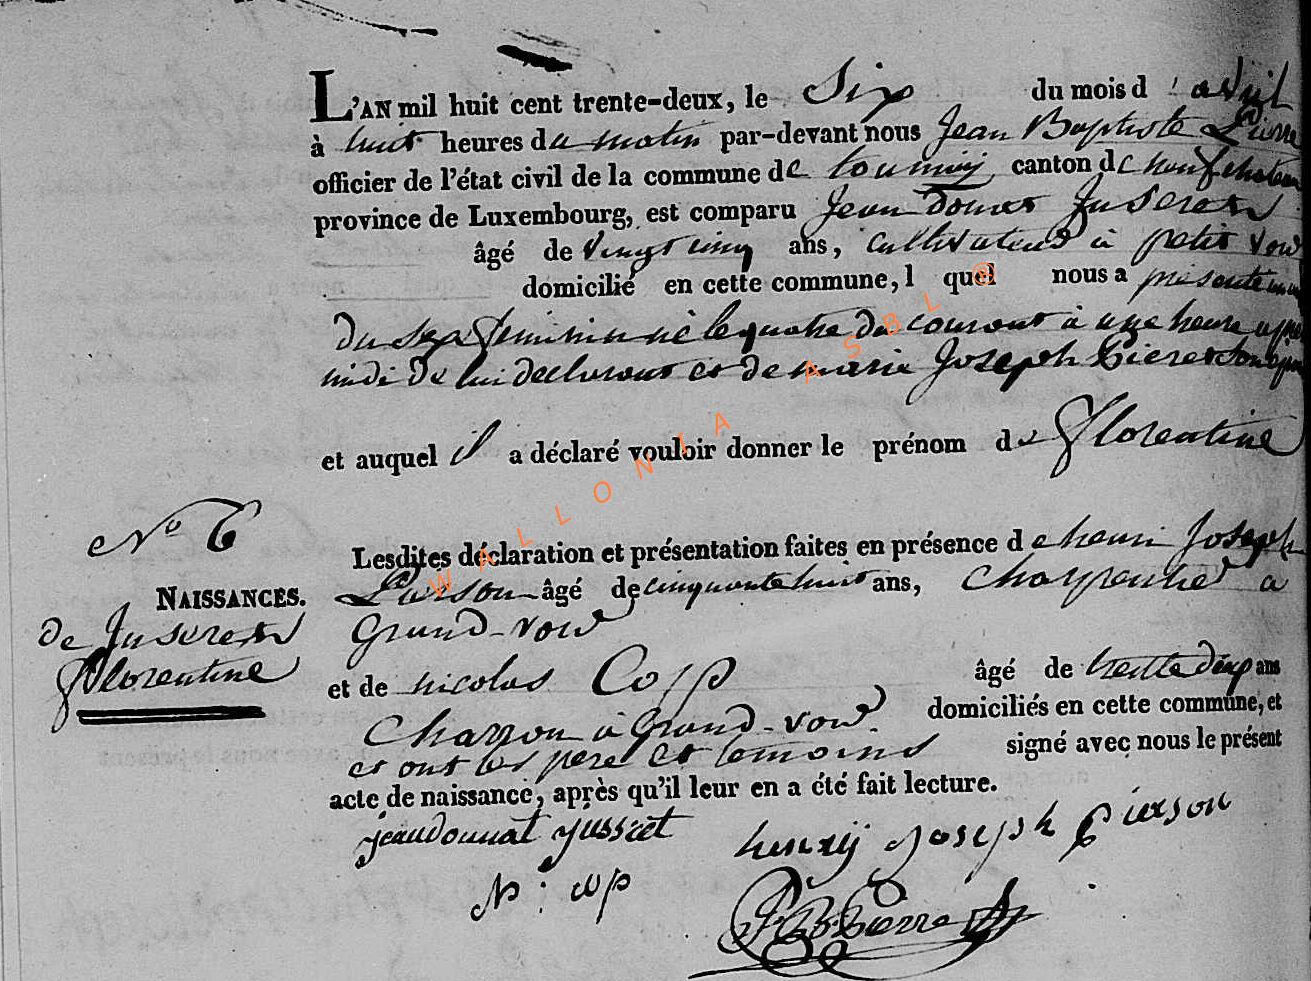 L'AN mil huit cent trente-deux, le Six du mois d'avril
à huit heures du matin par-devant nous Jean Baptiste Pierre
officier de l'état civil de la commune de tournay, canton de neufchateau
province de Luxembourg, est comparu Jean Donat Juseret
âgé de vingt cinq ans, cultivateur à petit voir
domicilié en cette commune, l quel nous a présenté un
du sexe féminin né le quatre du courant à une heure après
midi de lui déclarant et de marie Joseph Pieret son
et auquel il a déclaré vouloir donner le prénom de Florentine
No 6
Lesdites déclaration et présentation faites en présence de henri Joseph
NAISSANCES.
Pierson âgé de cinquante huit ans, charpentier a
de Juseret
Grand-voir
Florentine
et de nicolas Cop âgé de trente deux ans
charron à Grand-voir domiciliés en cette commune, et
et ont les pere et temoins signé avec nous le présent
acte de naissance, après qu'il leur en a été fait lecture.
jeandonnat jusseret
henry joseph pierson
N: cop
J B Pierre
WALLONIA ASBL ©